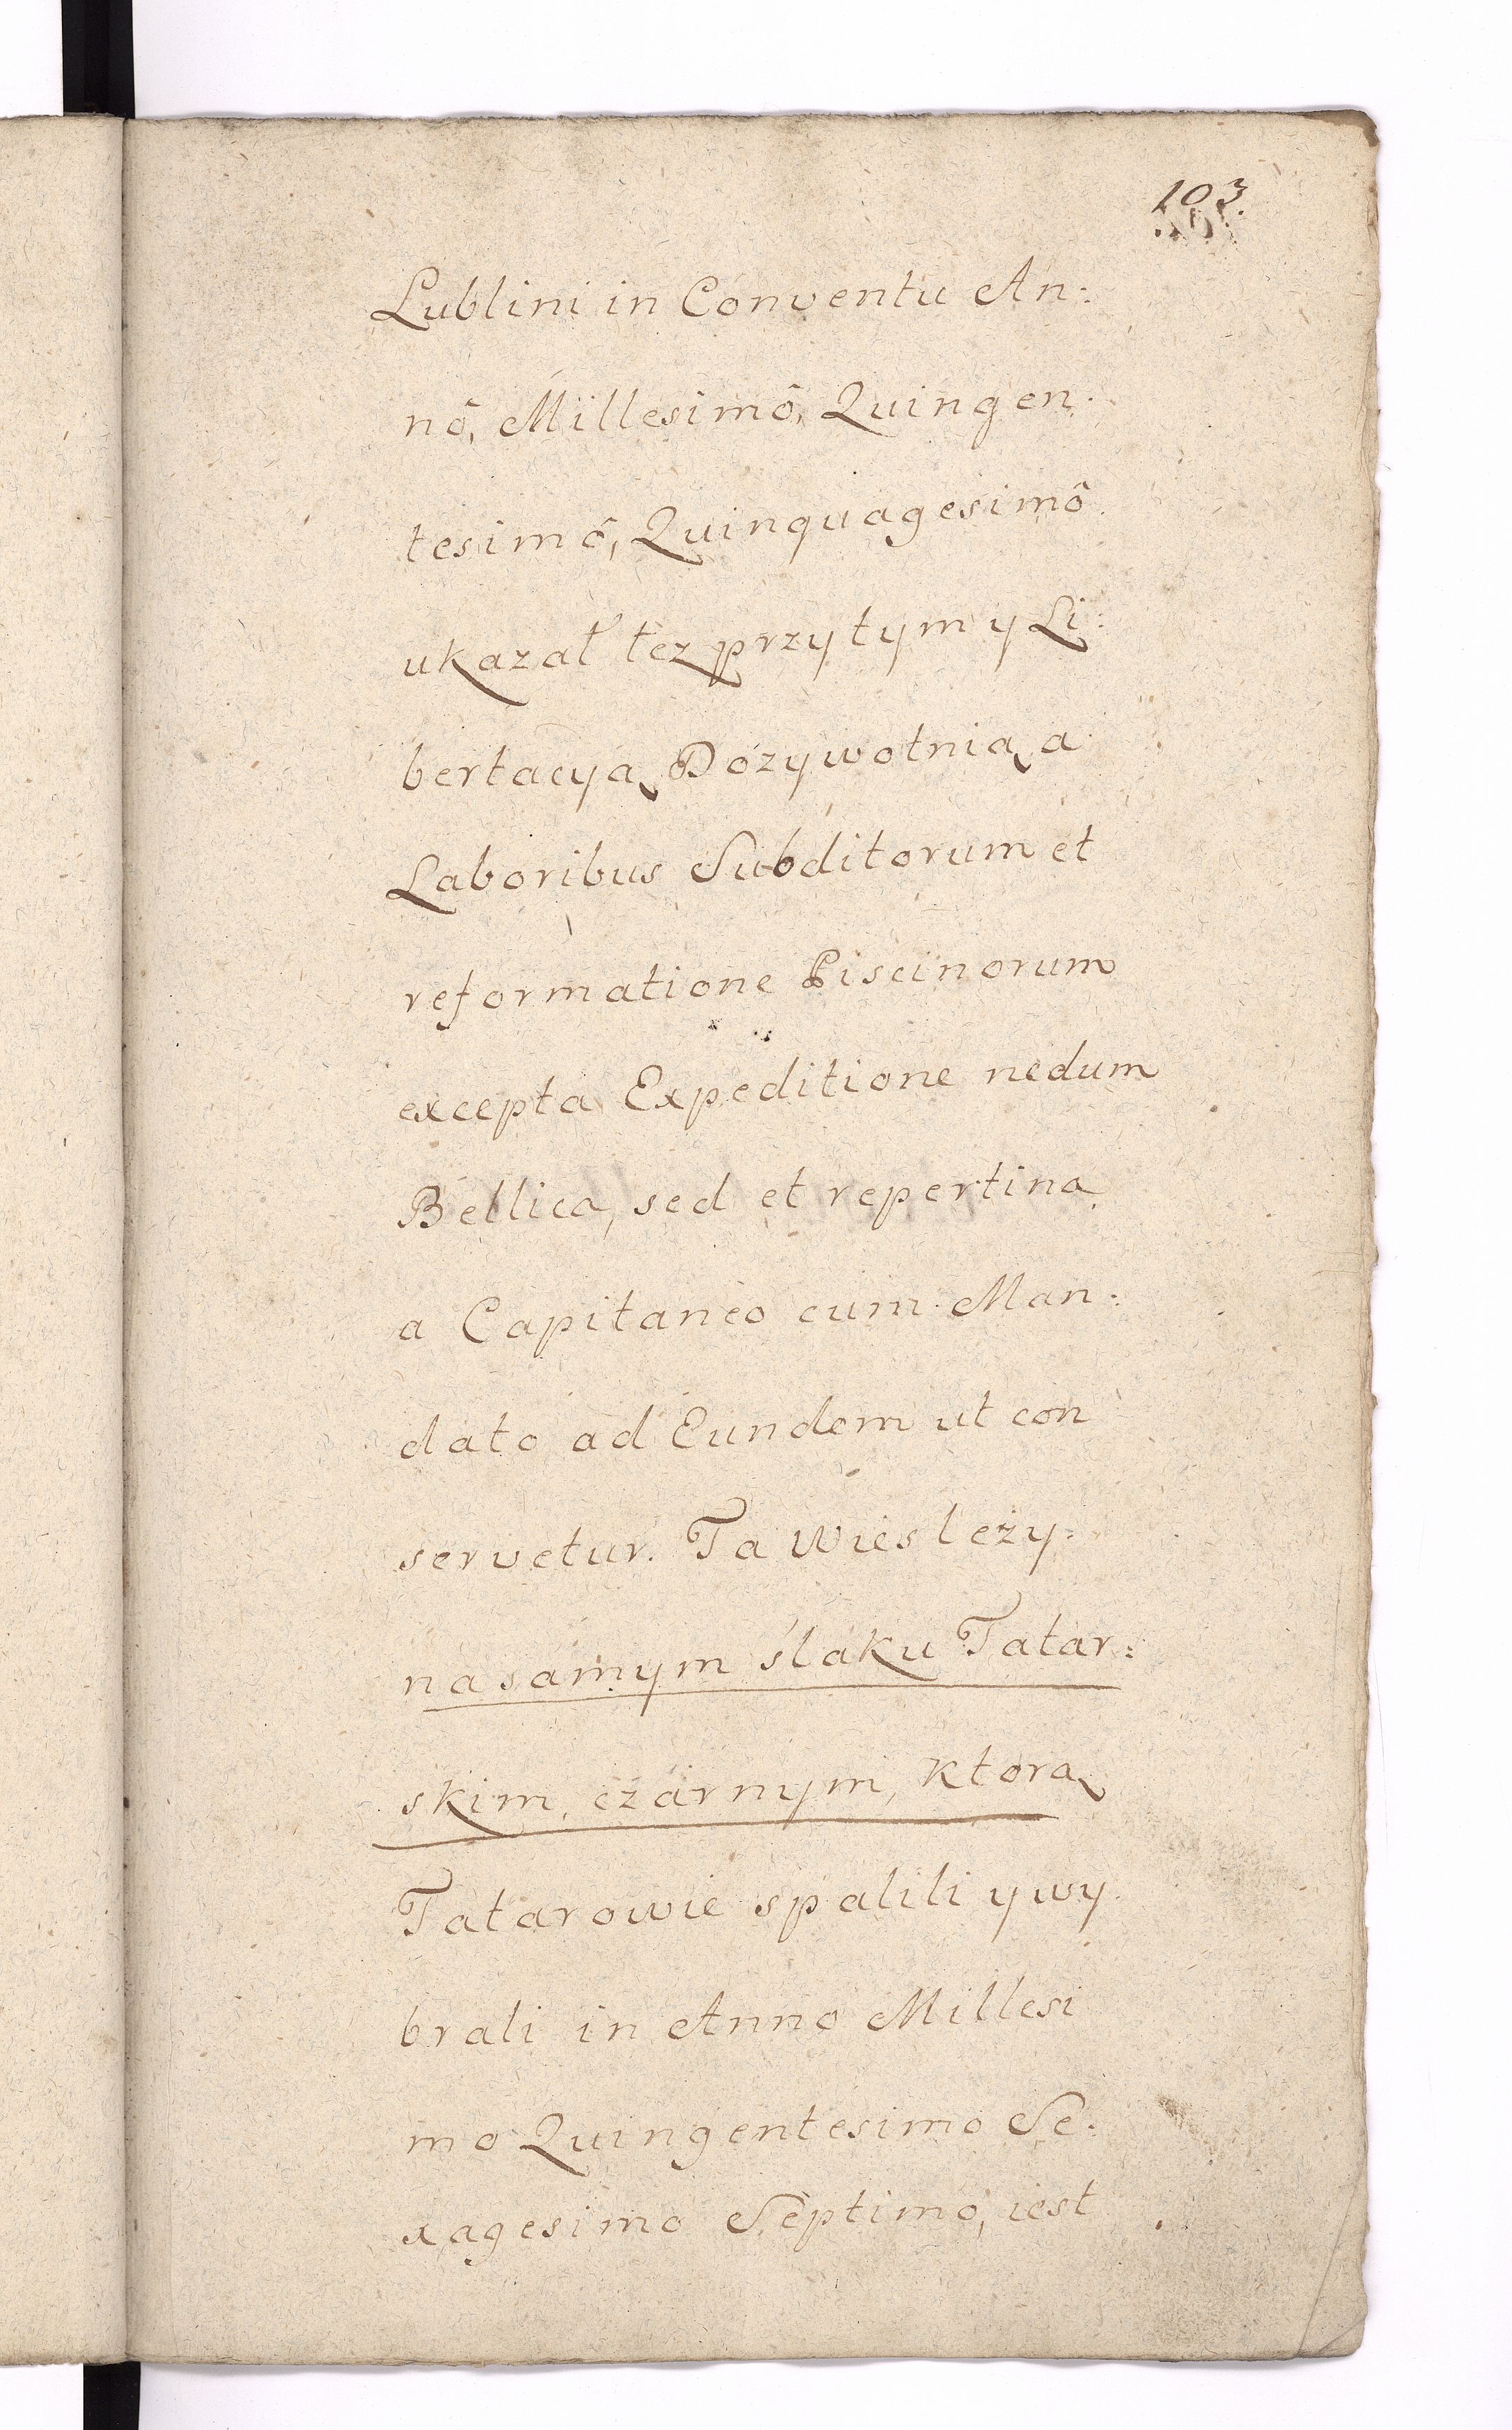 103.
Lublini in Conventu An:
nô, Millesimô, Quingen:
tesimô, Quinquagesimô.
ukazał też przytym y Li:
bertacyą Dożywotnią a
Laboribus Subditorum et
reformatione Piscinorum
excepta Expeditione nedum
Bellica, sed et repertina
a Capitaneo cum Man:
dato ad Eundem ut con
servetur. Ta Wies leży
na samym ślaku Tatar:
skim, czarnym, ktorą
Tatarowie spalili y wy
brali in Anno Millesi
mo Quingentesimo Se:
xagesimo Septimo, iest